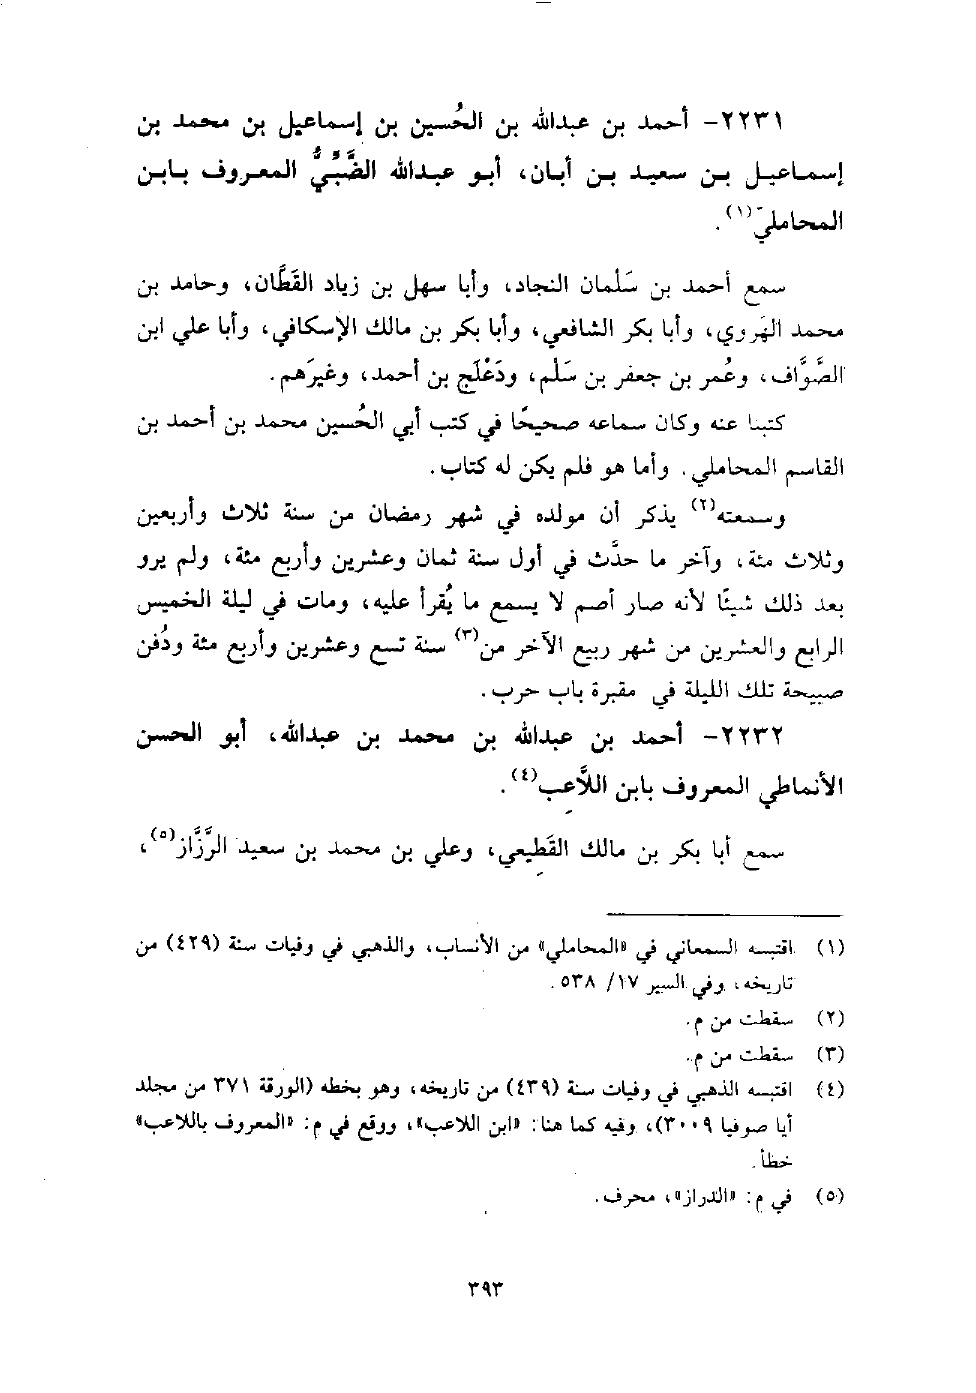 ٢٢٣١- أحمد بن عبدالله بن الحُسين بن إسماعيل بن محمد بن
إسماعيل بن سعيد بن أبان، أبو عبدالله الضَّبِّيُّ المعروف بابن
المحاملي(١).
سمع أحمد بن سَلْمان النجاد، وأبا سهل بن زياد القَطَّان، وحامد بن
محمد الهَروي، وأبا بكر الشافعي، وأبا بكر بن مالك الإسكافي، وأبا علي ابن
الصَّوَّاف، وعُمر بن جعفر بن سَلْم، ودَعْلَج بن أحمد، وغيرَهم.
كتبنا عنه وكان سماعه صحيحًا في كتب أبي الحُسين محمد بن أحمد بن
القاسم المحاملي. وأما هو فلم يكن له كتاب.
وسمعته(٢) يذكر أن مولده في شهر رمضان من سنة ثلاث وأربعين
وثلاث مئة، وآخر ما حدَّث في أول سنة ثمان وعشرين وأربع مئة، ولم يرو
بعد ذلك شيئًا لأنه صار أصم لا يسمع ما يُقرأ عليه، ومات في ليلة الخميس
الرابع والعشرين من شهر ربيع الآخر من(٣) سنة تسع وعشرين وأربع مئة ودُفن
صبيحة تلك الليلة في مقبرة باب حرب.
٢٢٣٢- أحمد بن عبدالله بن محمد بن عبدالله، أبو الحسن
الأنماطي المعروف بابن اللَّاعب(٤).
سمع أبا بكر بن مالك القَطِيعي، وعلي بن محمد بن سعيد الرَّزَّاز(٥)،
(١) اقتبسه السمعاني في «المحاملي» من الأنساب، والذهبي في وفيات سنة (٤٢٩) من
تاريخه، وفي السير ١٧/ ٥٣٨.
(٢) سقطت من م.
(٣) سقطت من م.
(٤) اقتبسه الذهبي في وفيات سنة (٤٣٩) من تاريخه، وهو بخطه (الورقة ٣٧١ من مجلد
أيا صوفيا ٣٠٠٩)، وفيه كما هنا: «ابن اللاعب»، ووقع في م: «المعروف باللاعب»
خطأ.
(٥) في م: «الدراز»، محرف.
٣٩٣